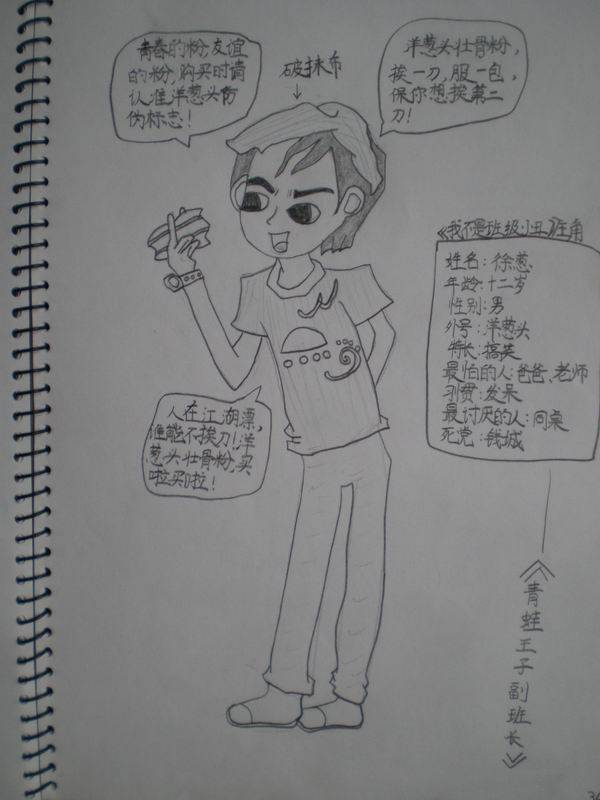 青春的粉,友谊
的粉,购买时请
认准洋葱头防
伪标志!
破抹布
洋葱头壮骨粉,
挨一刀,服一包,
保你想挨第二
刀!
《我不是班级小丑》主角
姓名:徐葱
年龄:十二岁
性别:男
外号:洋葱头
特长:搞笑
最怕的人:爸爸、老师
习惯:发呆
最讨厌的人:同桌
死党:钱城
人在江湖漂,
谁能不挨刀!洋
葱头壮骨粉,买
啦买啦!
《青蛙王子副班长》